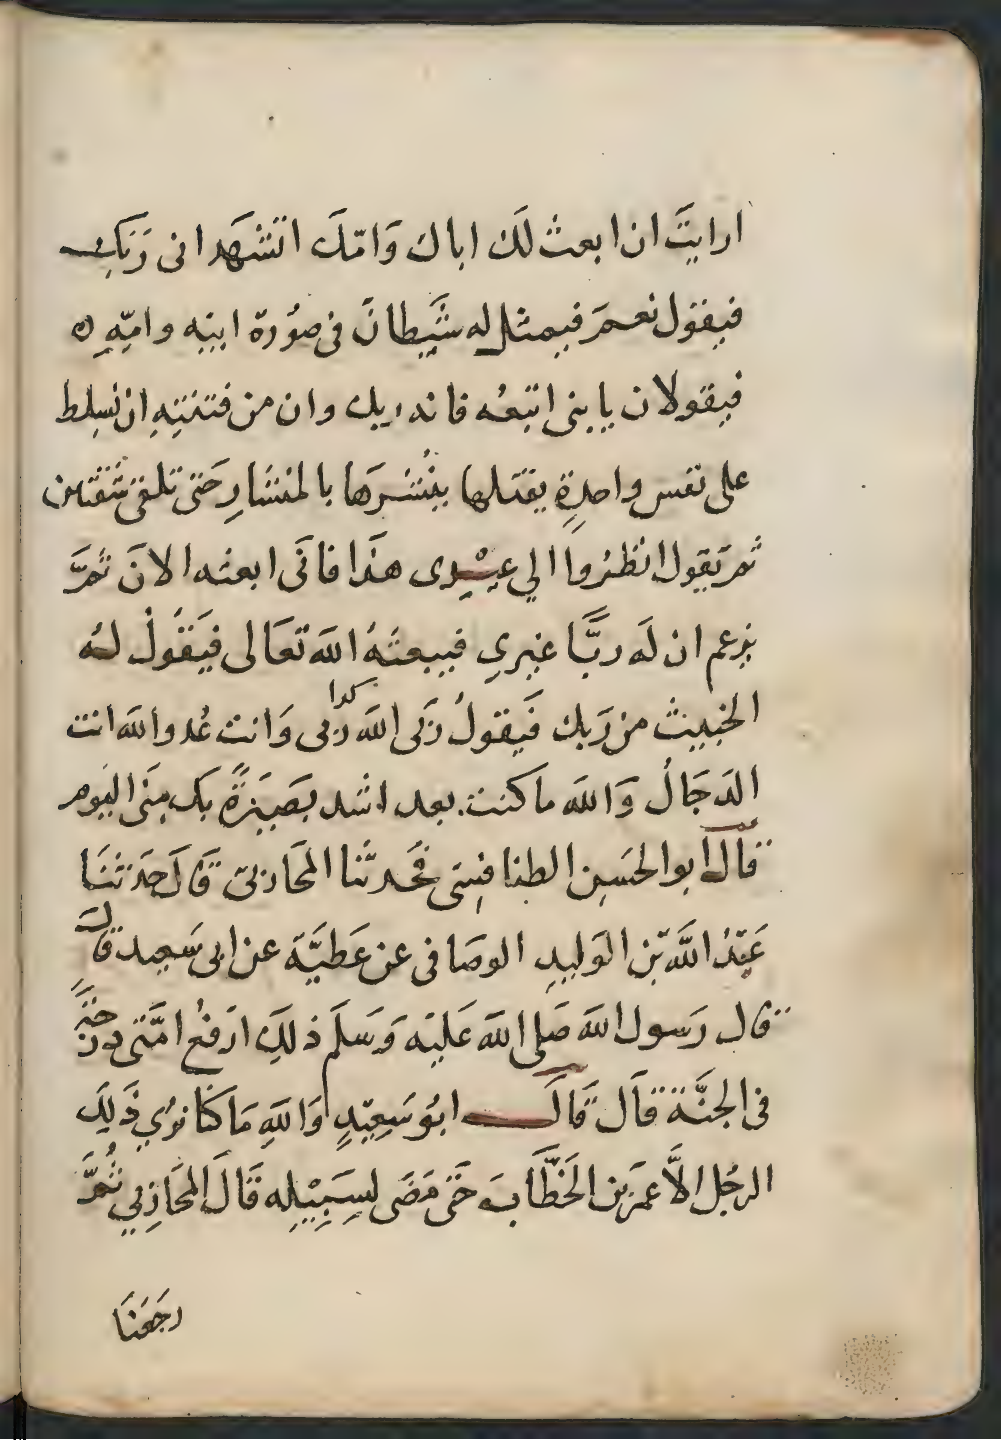 ارايتَ ان ابعث لَك اباك وَامّكَ اتشهَد انى رَبّك
فيقول نعمَ فيمثل له شَيطانَ فى صوُرة ابيه وامِّهِ
فيقولان يا بنى اتبعُه فانه ربك وان من فتنتِهِ ان يسلط
على نفس واحدِةٍ يقتلها ينُشرَها بالمنشارِ حَتى تلقى شقتين
ثم يَقول انظرُوا الي عبْدِى هذَا فانَى ابعثه الانَ ثمَّ
يزعم ان لَه ربًّا غيرىِ فيبعثهُ اللهَ تعَالى فيَقُولُ لهُ
الخبيث من رَبك فَيقولُ رَبى اللهَ ربى كدا وَانت عُدو اللهَ انت
الدَجَالُ وَاللهَ ما كنت بعد اشد بصَيرَةً بك منى اليوم
قَالَ ابو الحسَين الطنافسِى فحَدثَنا المحَاربى قَالَ حَدثنَا
عَبْدُ اللهَ بن الوَليدِ الوصَافى عن عَطيَّة عن ابى سَعيد قالَ
قال رَسول اللهَ صَلى اللهَ عَليَه وَسَلَم ذلِكَ ارَفعُ امَّتى درَجَةً
فى الجنَّة قال قَالَ ابوُ سَعِيْدٍ وَاللهِ مَا كنَا نرُي ذَلِكَ
الرجُل الاَّ عمَر بن الخَطَّابَ حَتى مَضَى لسِبَيْلِه قَالَ المحَارِبي ثُمَّ
رجَعَنا